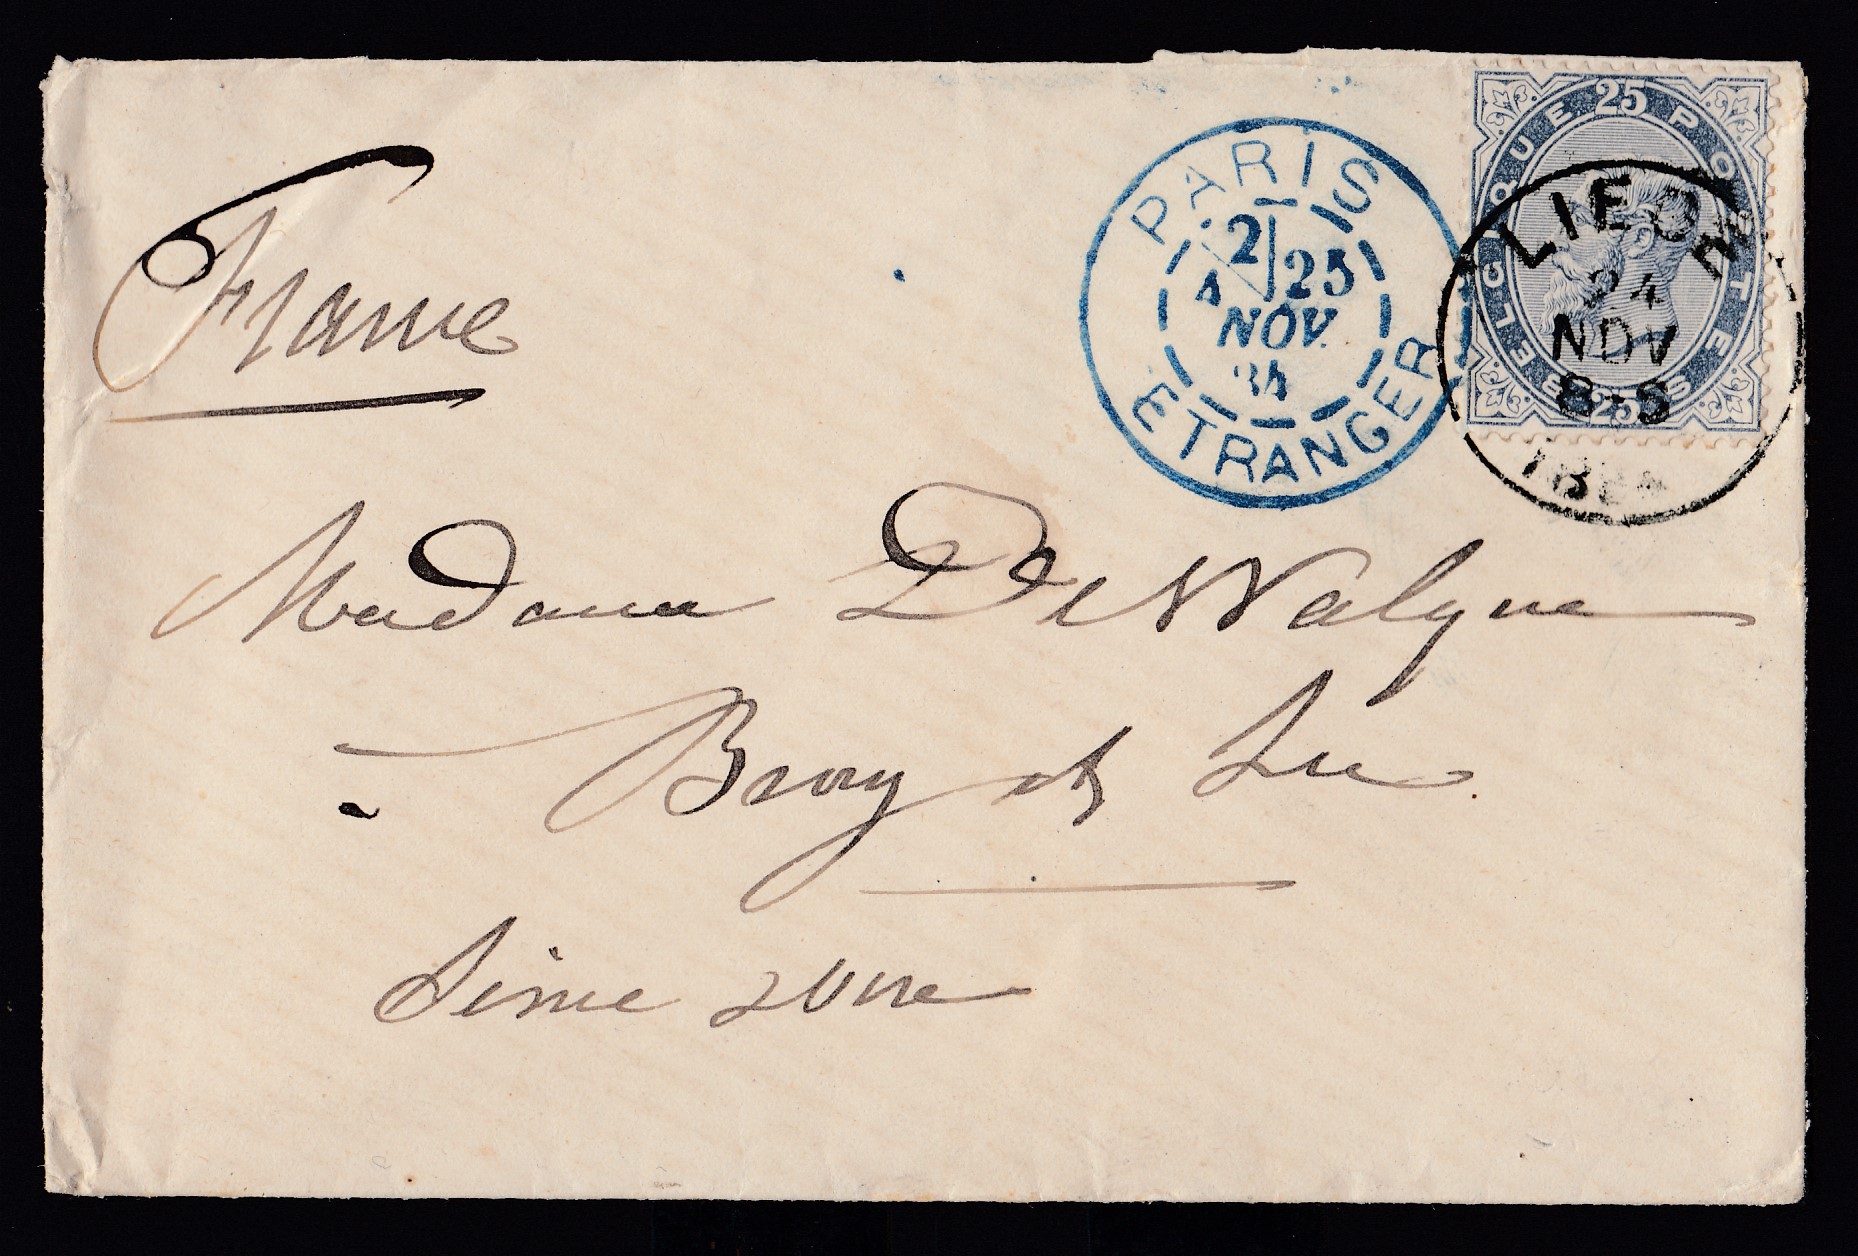 France
PARIS
2 25
NOV
84
ETRANGER
BELGIQUE 25 POSTES
25
LIEGE
24
NOV
8-S
Madame De Walque
Bray et Lu
Seine & Oise